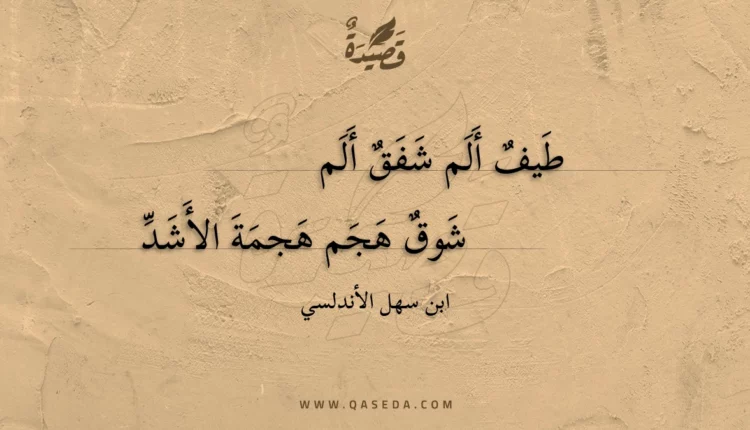 قَصِيْدَةٌ
طَيفٌ أَلَم شَفَقٌ أَلَم
شَوقٌ هَجَم هَجمَةَ الأَشَدِّ
ابن سهل الأندلسي
WWW.QASEDA.COM